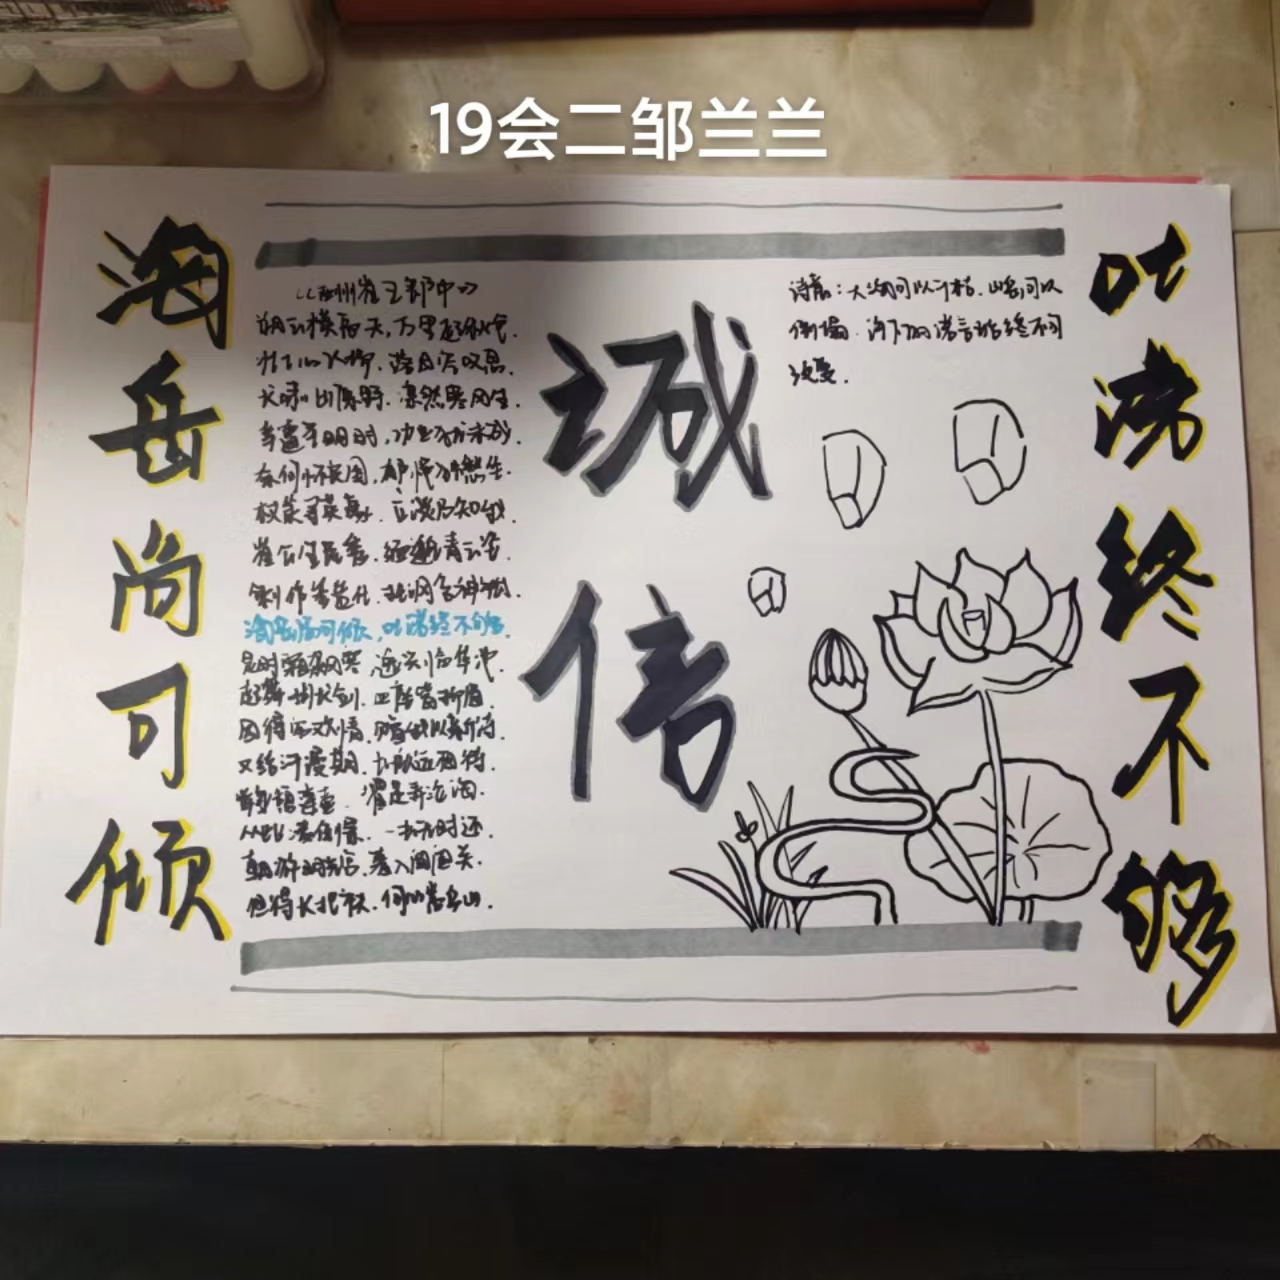 19会二邹兰兰
海岳尚可倾
《酬崔五郎中》
朔云横高天,万里起秋色.
壮士心飞扬,落日空叹息.
长啸出原野,凛然寒风生.
幸遭圣明时,功业犹未成.
奈何怀良图,郁悒独愁坐.
杖策寻英豪,立谈乃知我.
崔公生民秀,缅邈青云姿.
制作参造化,托讽含神祇.
海岳尚可倾,吐诺终不移.
是时霜飙寒,逸兴临华池.
起舞拂长剑,四座皆扬眉.
因得穷欢情,赠我以新诗.
又结汗漫期,九垓远相待.
举身憩蓬壶,濯足弄沧海.
从此凌倒景,一去无时还.
朝游明光宫,暮入阊阖关.
但得长把袂,何必嵩丘山.
诚信
诗意:大海可以干枯,山岳可以
倒塌,许下的诺言始终不可
改变.
吐诺终不移